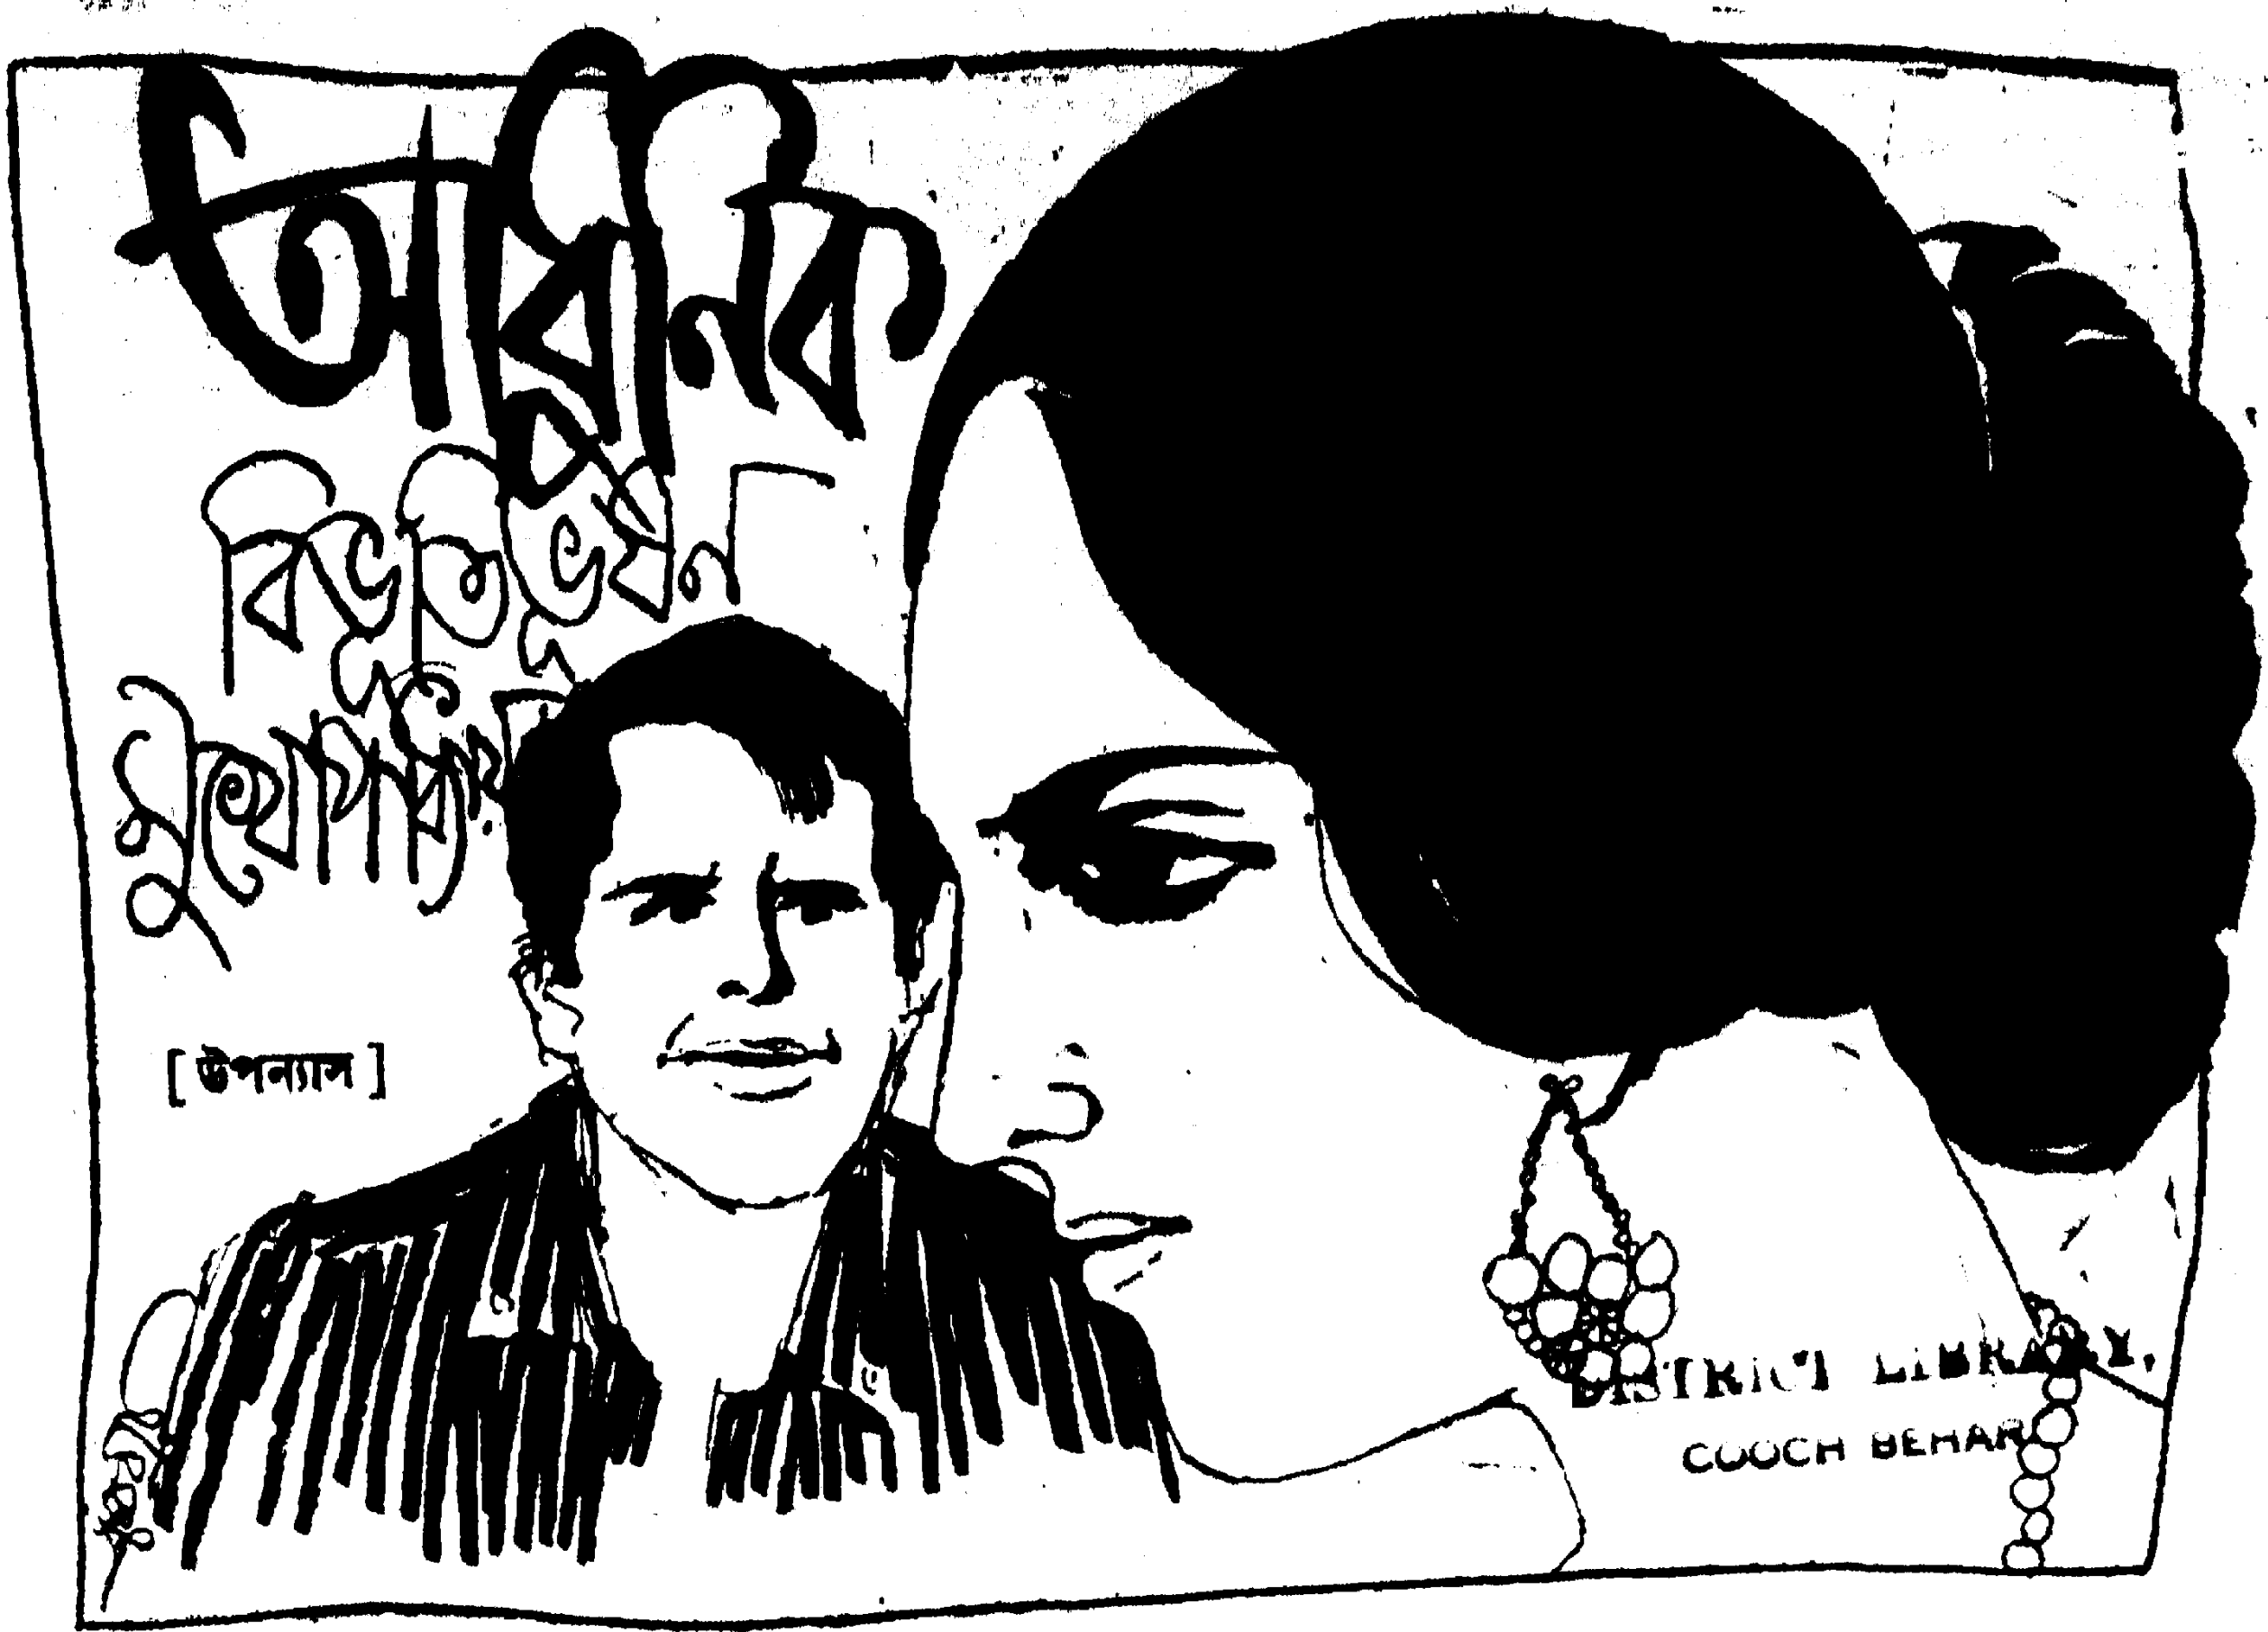 আধুনিক
বিভূতিভূষণ
মুখোপাধ্যায়
[ উপন্যাস ]
DISTRICT LIBRARY,
COOCH BEHAR